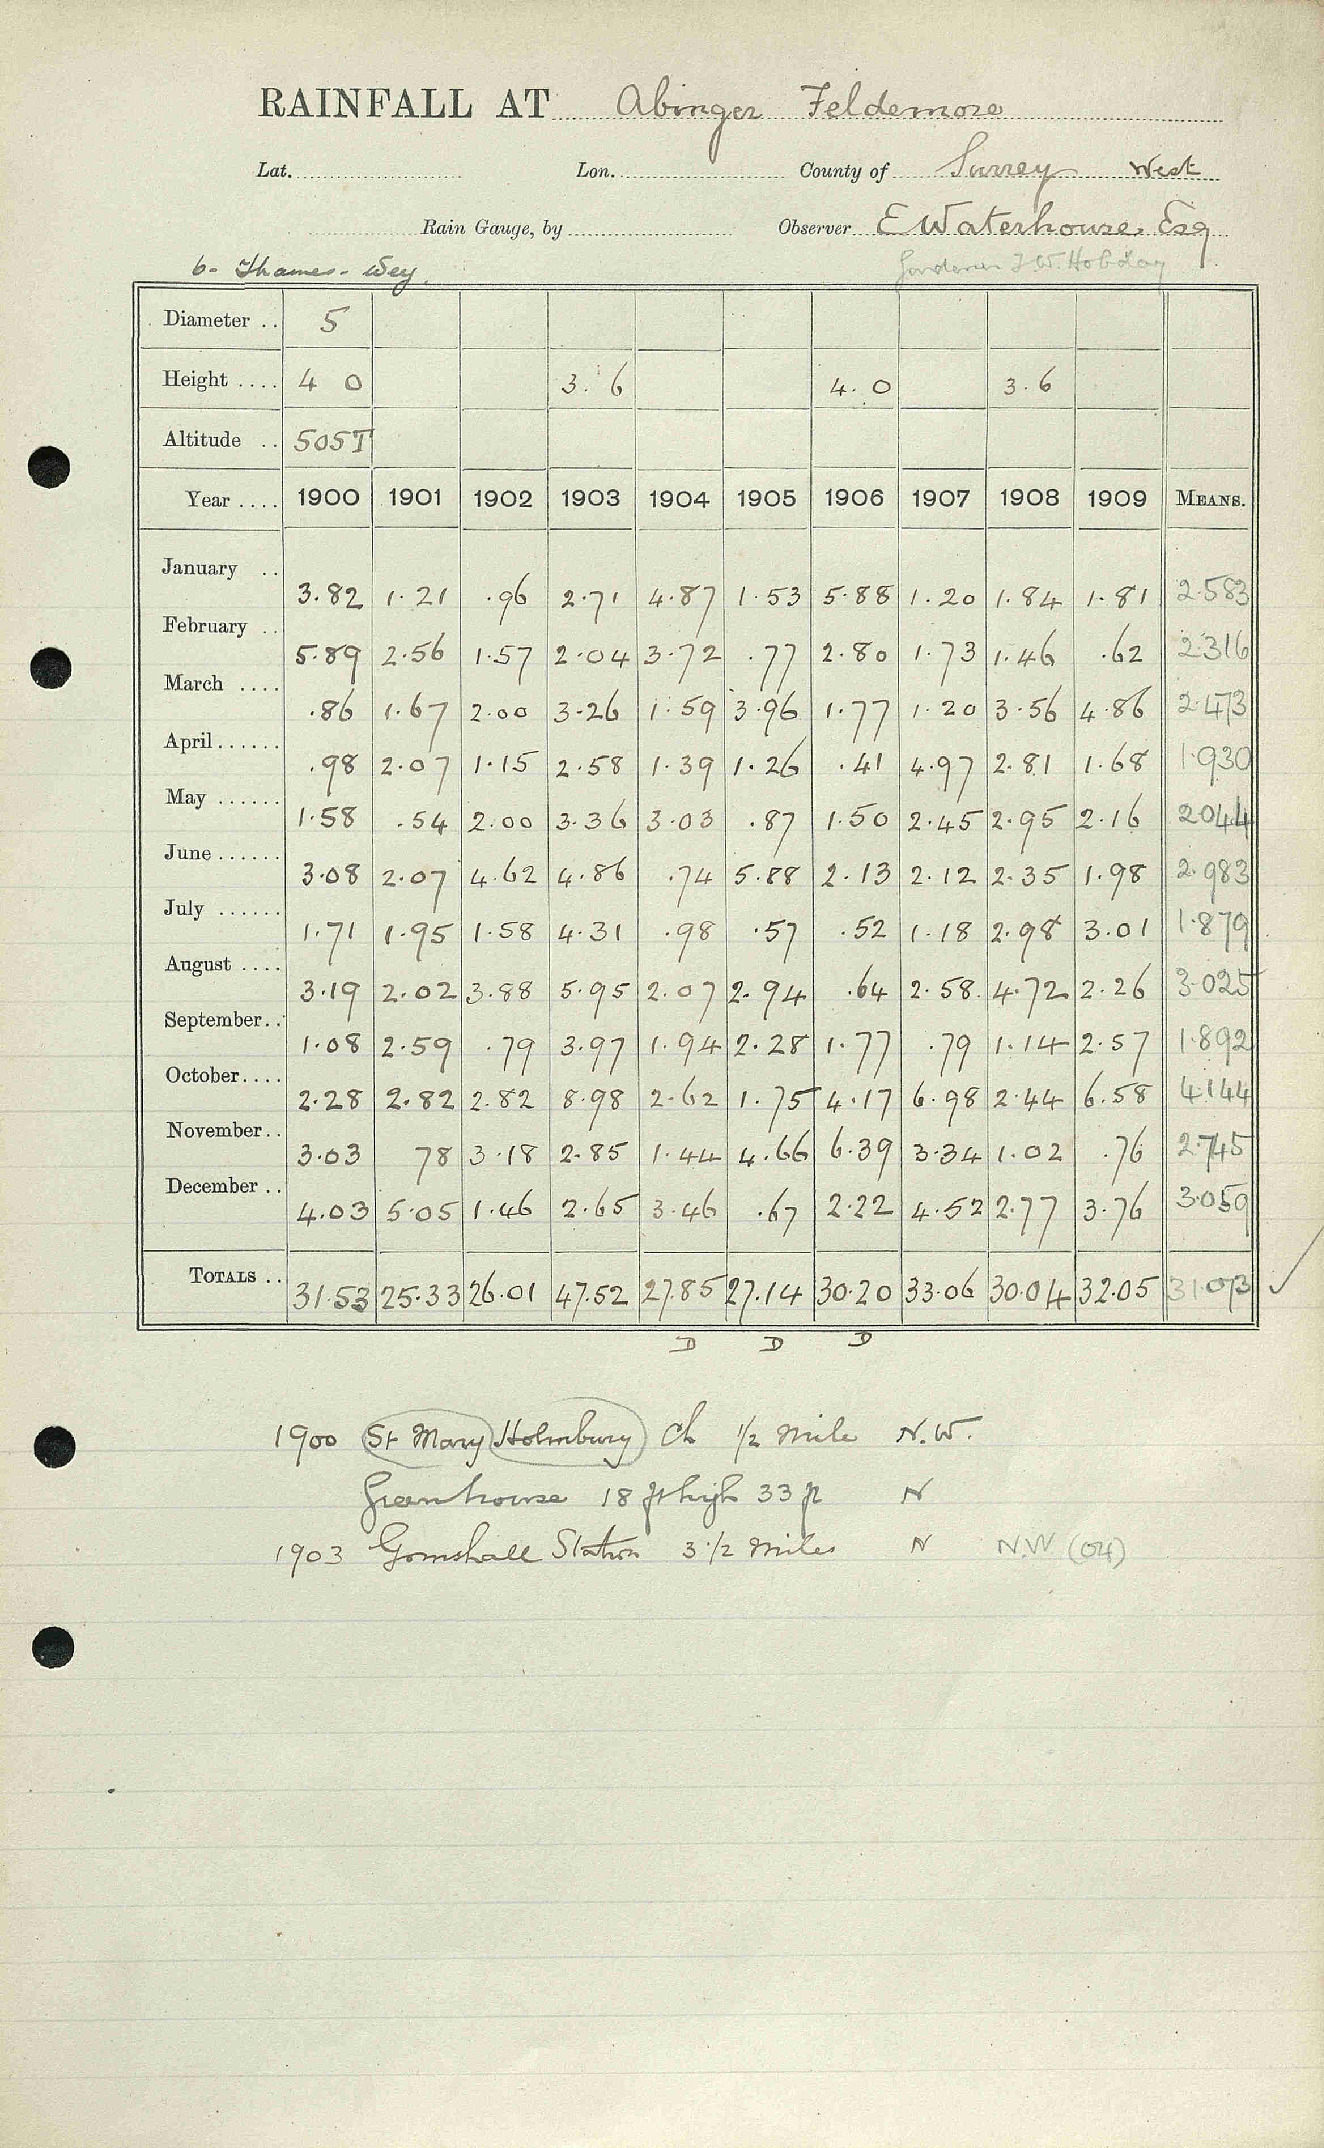 RAINFALL AT Abinger Feldemore
Lat. Lon. County of Surrey West
Rain Gauge, by Observer E Waterhouse Esq
6- Thames - Wey. Gardener J. W. Hobday
Diameter .. 5
Height .... 4 0 3. 6 4. 0 3. 6
Altitude .. 505T
Year .... 1900 1901 1902 1903 1904 1905 1906 1907 1908 1909 MEANS.
January .. 3.82 1.21 .96 2.71 4.87 1.53 5.88 1.20 1.84 1.81 2.583
February .. 5.89 2.56 1.57 2.04 3.72 .77 2.80 1.73 1.46 .62 2.316
March .... .86 1.67 2.00 3.26 1.59 3.96 1.77 1.20 3.56 4.86 2.473
April...... .98 2.07 1.15 2.58 1.39 1.26 .41 4.97 2.81 1.68 1.930
May ...... 1.58 .54 2.00 3.36 3.03 .87 1.50 2.45 2.95 2.16 2044
June...... 3.08 2.07 4.62 4.86 .74 5.88 2.13 2.12 2.35 1.98 2.983
July ...... 1.71 1.95 1.58 4.31 .98 .57 .52 1.18 2.98 3.01 1.879
August .... 3.19 2.02 3.88 5.95 2.07 2.94 .64 2.58 4.72 2.26 3.025
September.. 1.08 2.59 .79 3.97 1.94 2.28 1.77 .79 1.14 2.57 1.892
October.... 2.28 2.82 2.82 8.98 2.62 1.75 4.17 6.98 2.44 6.58 4.144
November.. 3.03 78 3.18 2.85 1.44 4.66 6.39 3.34 1.02 .76 2.745
December .. 4.03 5.05 1.46 2.65 3.46 .67 2.22 4.52 2.77 3.76 3.059
TOTALS .. 31.53 25.33 26.01 47.52 27.85 27.14 30.20 33.06 30.04 32.05 31.073
D D D
1900 St Mary Holmbury Ch 1/2 mile N.W.
Greenhouse 18 ft high 33 ft N
1903 Gomshall Station 3 1/2 miles N N.W (04)